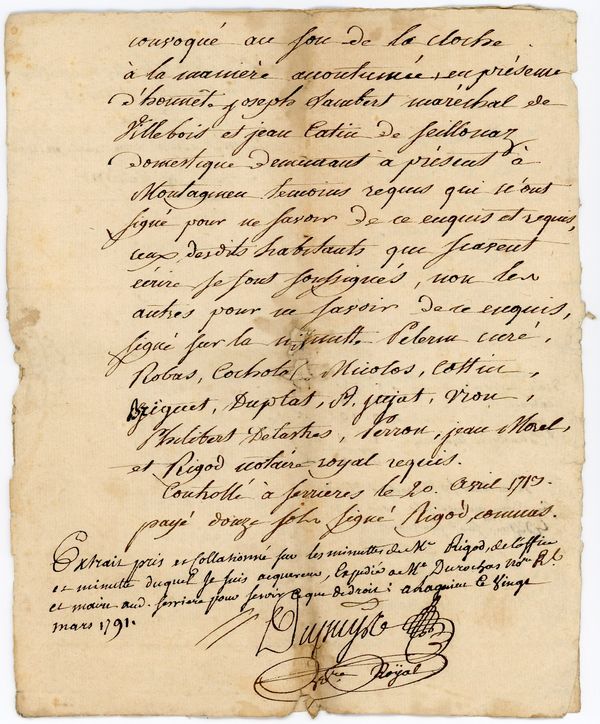 convoqué au son de la cloche
à la manière acoutumée, en présence
d'honnete joseph Lambert maréchal de
Villebois et jean Catin de Seillonaz
domestique demeurant a présent à
Montagneu temoins requis qui n'ont
signé pour ne savoir de ce enquis et requis,
ceux desdits habitants qui scavent
écrire se sont soussignés, non les
autres pour ne savoir de ce enquis,
signé sur la minutte Pelerin curé,
Robas, Micolos, Cottin,
Briquet, Duplat, jujat, Vion,
Philibert Delastres, Perron, jean Morel,
et Rigod notaire royal requis.
Controllé à serrieres le 20. avril
payé douze sols signé Rigod, commis.
Extrait pris et Collationné sur les minuttes de Me Rigod, de l'office
et minutte duquel je suis acquereur, Expedié a Me Durochas
et maire aud. serriere pour servir ce que de droit: a le vingt
mars 1791.
Royal